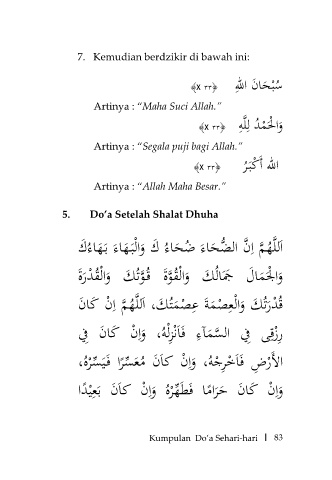 7. Kemudian berdzikir di bawah ini:
سُبْحَانَ اللهِ ﴿٣٣ x﴾
Artinya : “Maha Suci Allah.”
وَالْحَمْدُ لِلَّهِ ﴿٣٣ x﴾
Artinya : “Segala puji bagi Allah.”
الله أَكْبَرُ ﴿٣٣ x﴾
Artinya : “Allah Maha Besar.”
5. Do’a Setelah Shalat Dhuha
اَللَّهُمَّ اِنَّ الضُّحَاءَ ضُحَاءُ كَ وَالْبَهَاءَ بَهَاءُكَ
وَالْجَمَالَ جَمَالُكَ وَالْقُوَّةَ قُوَّتُكَ وَالْقُدْرَةَ
قُدْرَتُكَ وَالْعِصْمَةَ عِصْمَتُكَ، اَللَّهُمَّ اِنْ كَانَ
رِزْقِى فِي السَّمَآءِ فَأَنْزِلْهُ، وَاِنْ كَانَ فِي
الأَرْضِ فَاَخْرِجْهُ، وَاِنْ كاَنَ مُعَسِّرًا فَيَسِّرْهُ،
وَاِنْ كَانَ حَرَامًا فَطَهِّرْهُ وَاِنْ كاَنَ بَعِيْدًا
Kumpulan Do’a Sehari-hari | 83